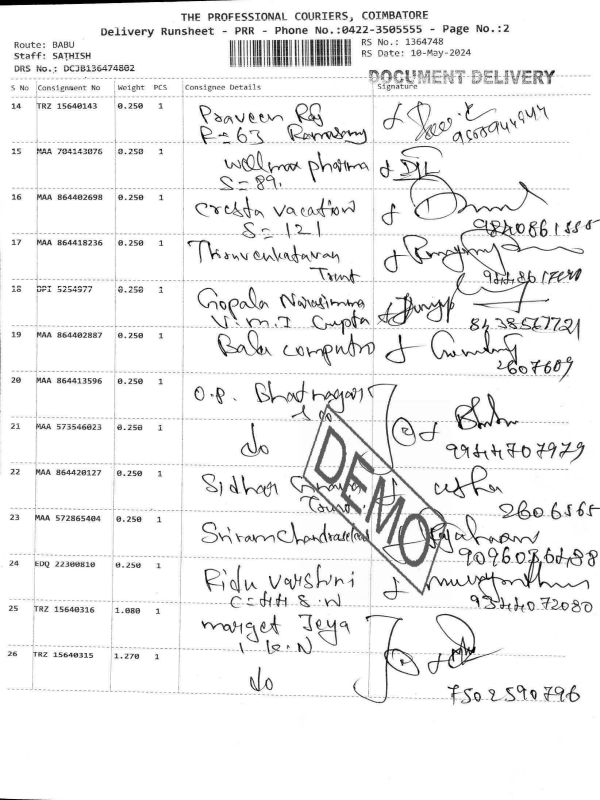 THE PROFESSIONAL COURIERS, COIMBATORE
Delivery Runsheet - PRR - Phone No.:0422-3505555 - Page No.:2
Route: BABU
RS No.: 1364748
Staff: SATHISH
RS Date: 10-May-2024
DRS No.: DCJB136474802
DOCUMENT DELIVERY
S No Consignment No Weight PCS Consignee Details Signature
14 TRZ 15640143 0.250 1 Praveen Raj
R=63 Ramasamy
15 MAA 704143076 0.250 1 Wellmax pharma
S=89.
16 MAA 864402698 0.250 1 Cresta vacation
S=121 9840861555
17 MAA 864418236 0.250 1 Thiruvenkatavan
Trust
18 DPI 5254977 0.250 1 Gopala Narasimma
V.M.J Gupta 8438567721
19 MAA 864402887 0.250 1 Bala computro
2607609
20 MAA 864413596 0.250 1 O.P. Bhatnagar
& co
21 MAA 573546023 0.250 1 do 9944707979
22 MAA 864420127 0.250 1 Sidhar Trust usha
2606565
23 MAA 572865404 0.250 1 Sriram
24 EDQ 22300810 0.250 1 Ridu Varshni
C=44 S.N 9344072080
25 TRZ 15640316 1.080 1 marget Jeya
1 K.N
26 TRZ 15640315 1.270 1 do
7502590796
DEMO